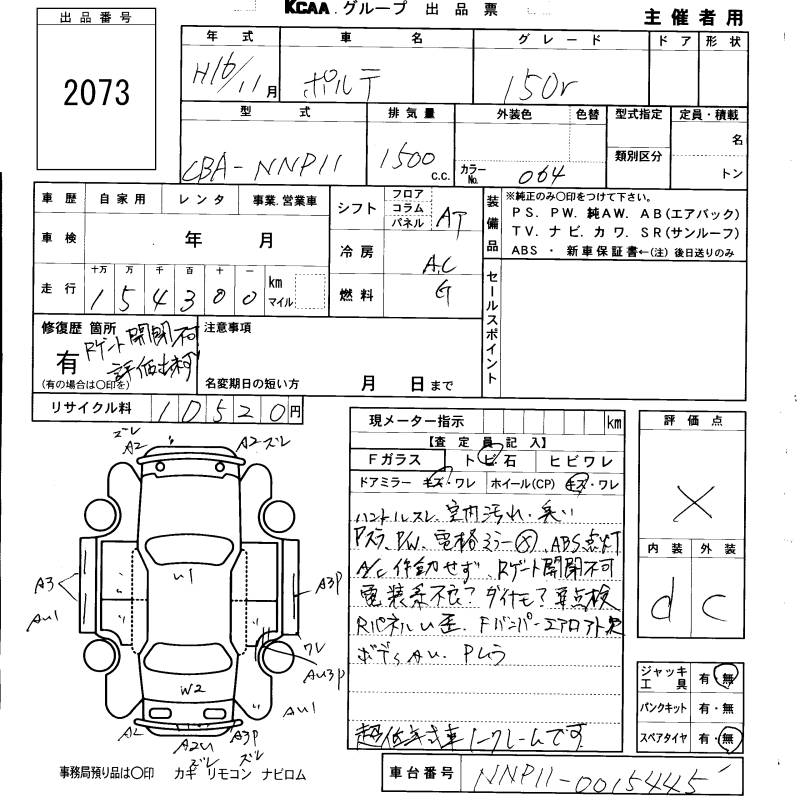 KCAA グループ 出品票
主催者用
出品番号
2073
年式 車名 グレード ドア 形状
H16/11月 ポルテ 150r
型式 排気量 外装色 色替 型式指定 定員・積載
類別区分 名
CBA-NNP11 1500 c.c. カラーNo. 064 トン
車歴 自家用 レンタ 事業.営業車
車検 年 月
走行 十万 万 千 百 十 一 km マイル
154300
シフト フロア コラム パネル AT
冷房 A.C
燃料 G
装備品
※純正のみ〇印をつけて下さい。
PS. PW. 純AW. AB(エアバック)
TV. ナビ. カワ. SR(サンルーフ)
ABS ・ 新車保証書←(注) 後日送りのみ
セールスポイント
修復歴 箇所
有
(有の場合は〇印を)
Rゲート開閉不可
評価出来ず
注意事項
名変期日の短い方 月 日まで
リサイクル料 10520円
現メーター指示 km
【査定員記入】
Fガラス トビ石 ヒビワレ
ドアミラー キズ・ワレ ホイール(CP) キズ・ワレ
ハンドルスレ 室内汚れ・臭い
Pスラ、PW、電格ミラー×、ABS点灯
A/C作動せず、Rゲート開閉不可
電装系不良?ダイナモ?要点検
RパネルU歪、Fバンパーエアロアト欠
ボデーAU、
超低年式車ノークレームです
評価点
×
内装 外装
d c
ジャッキ工具 有・無
パンクキット 有・無
スペアタイヤ 有・無
ズレ A2
A2ズレ
U1
A3
AU1
A3P
ワレ
AU3P
W2
AU1
A2
A2U
ズレ
A3P
ズレ
事務局預り品は〇印 カギ リモコン ナビロム
車台番号 NNP11-0015445